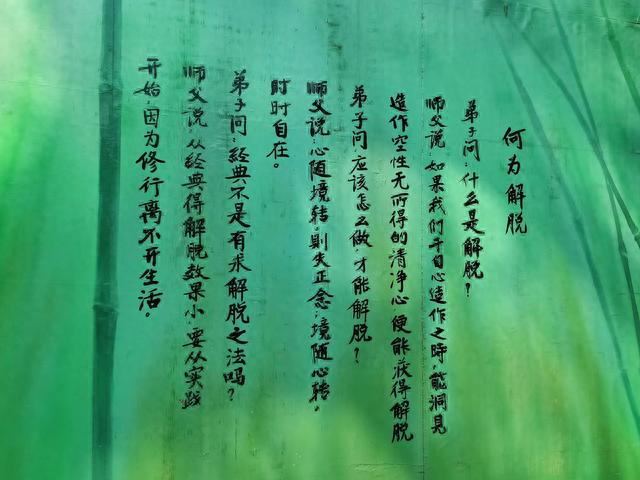 何为解脱
弟子问：什么是解脱？
师父说：如果我们于自心造作之時，能洞見
造作空性无所得的清净心，便能获得解脱
弟子问：应该怎么做，才能解脱？
师父说：心随境转，则失正念；境随心转，
时时自在。
弟子问：经典不是有求解脱之法吗？
师父说：从经典得解脱效果小，要从实践
开始，因为修行离不开生活。